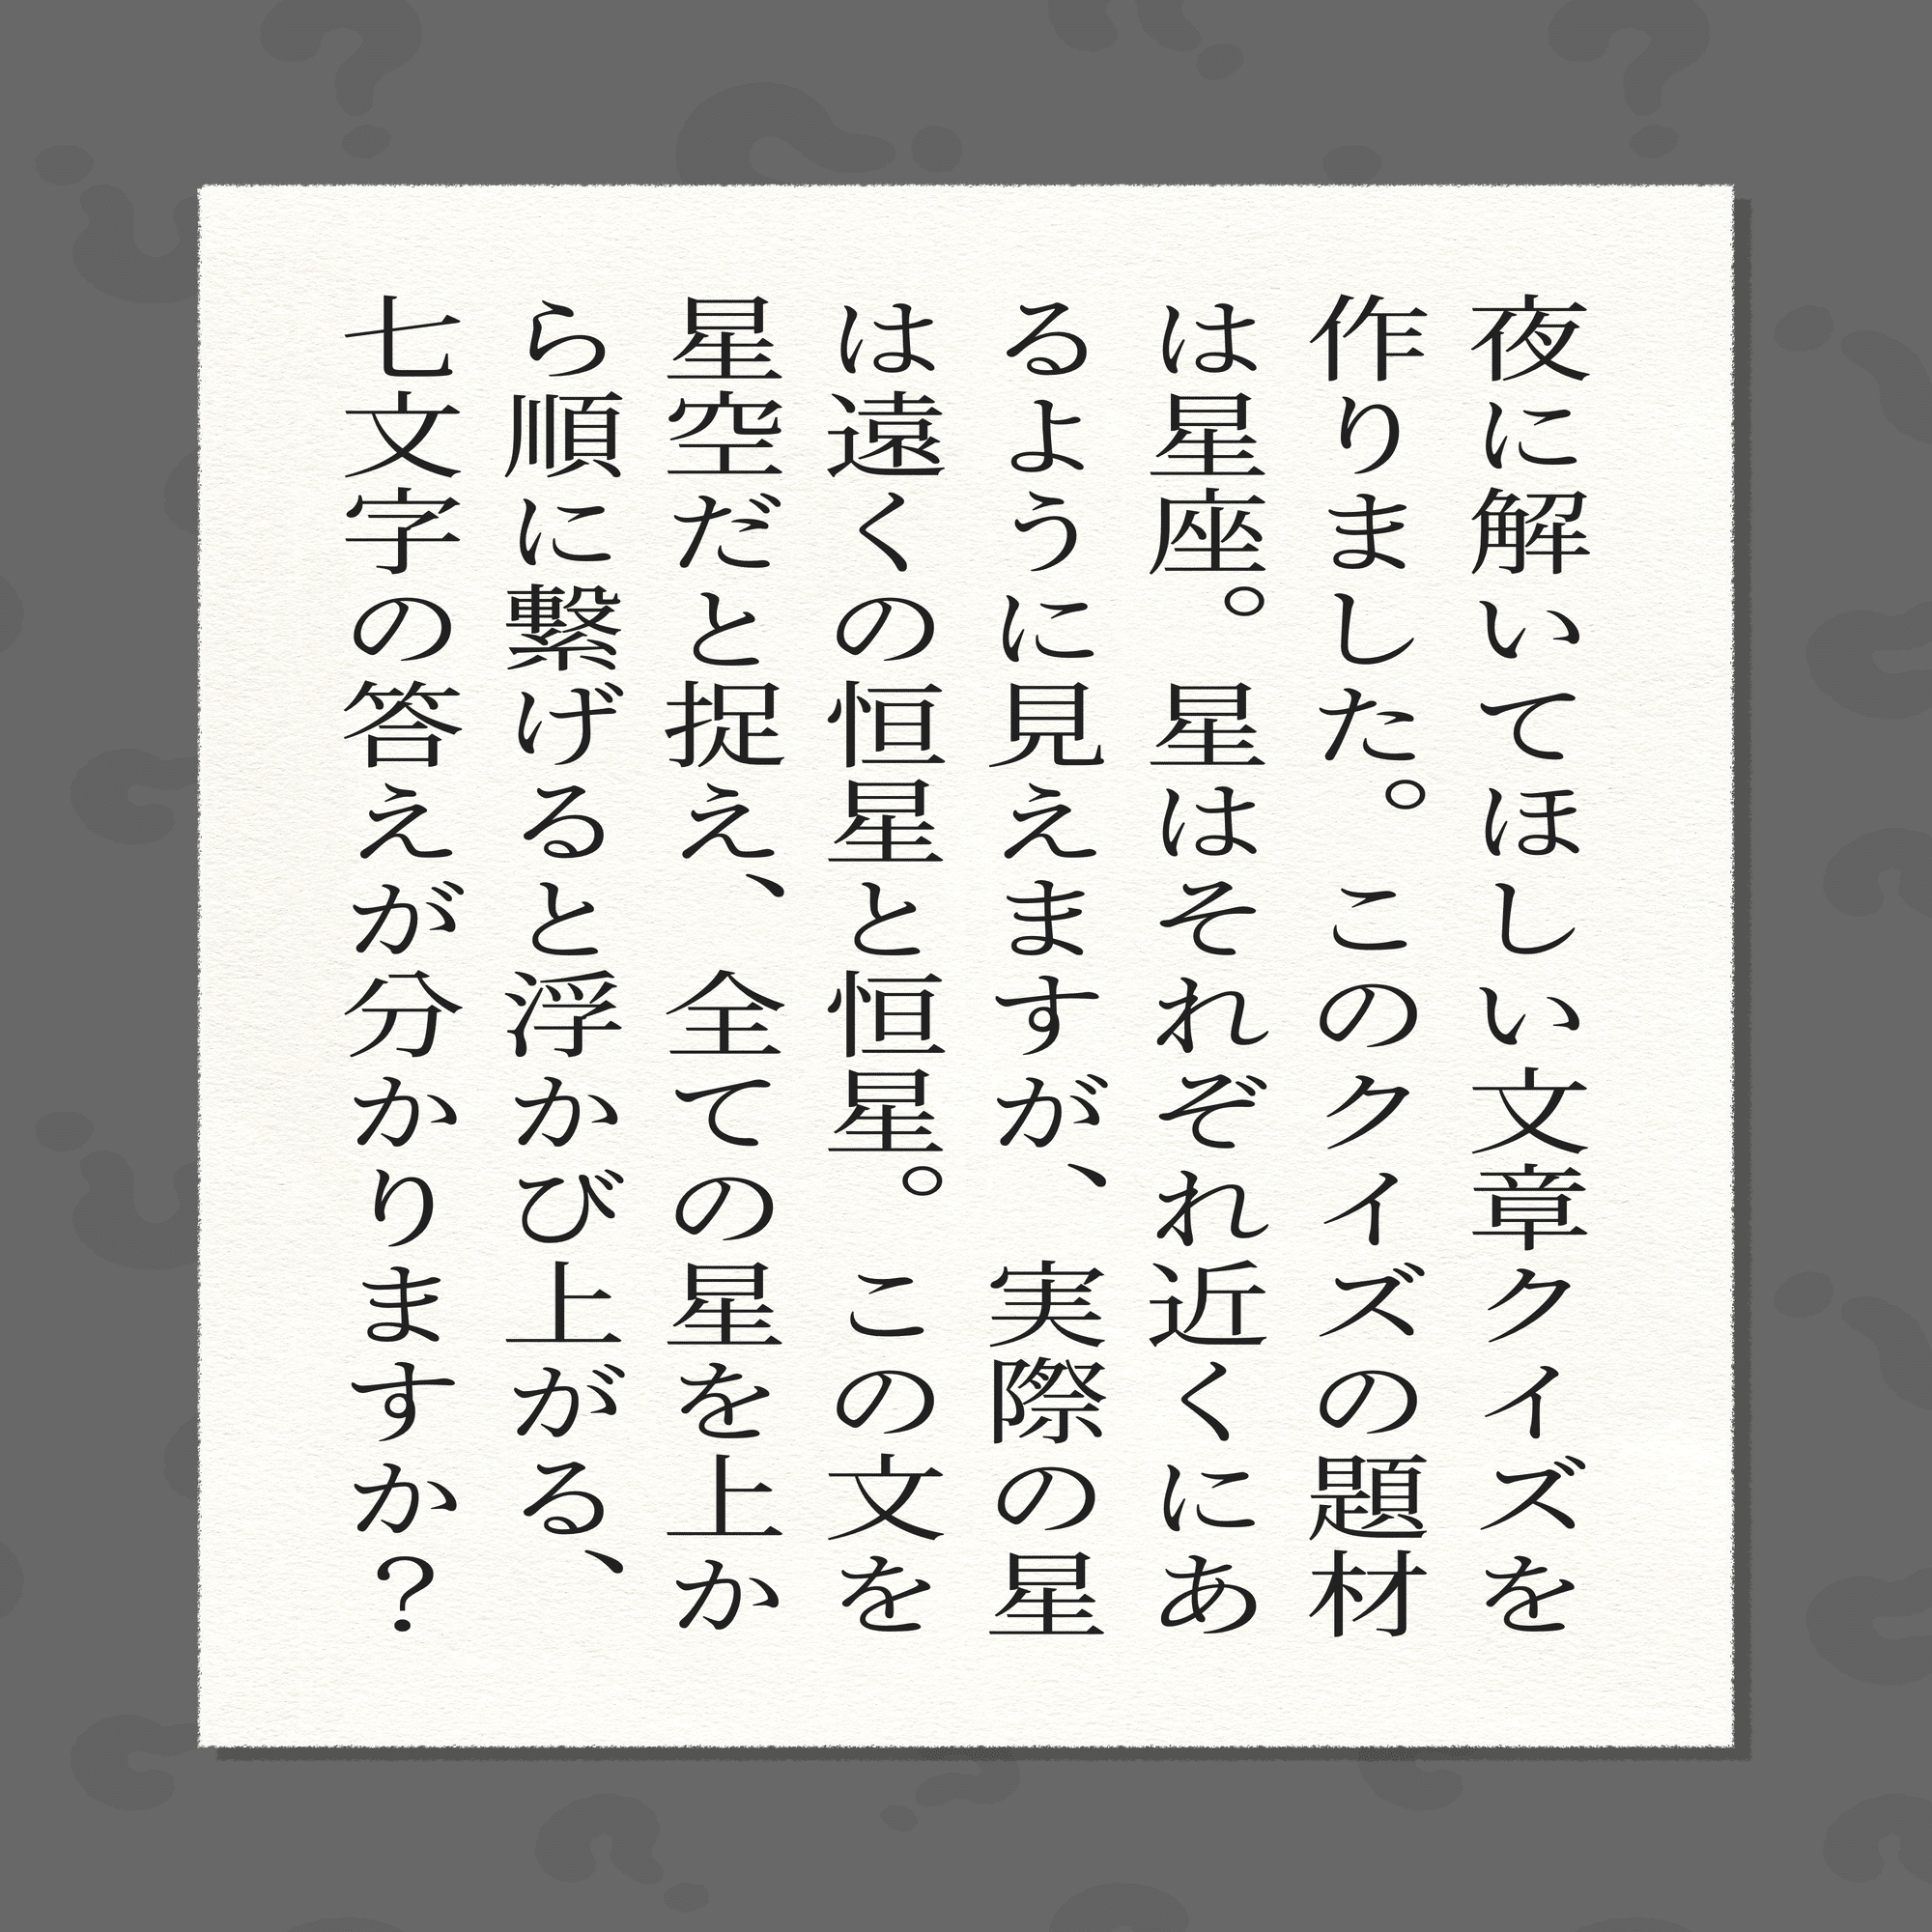 夜に解いてほしい文章クイズを
作りました。このクイズの題材
は星座。星はそれぞれ近くにあ
るように見えますが、実際の星
は遠くの恒星と恒星。この文を
星空だと捉え、全ての星を上か
ら順に繋げると浮かび上がる、
七文字の答えが分かりますか？